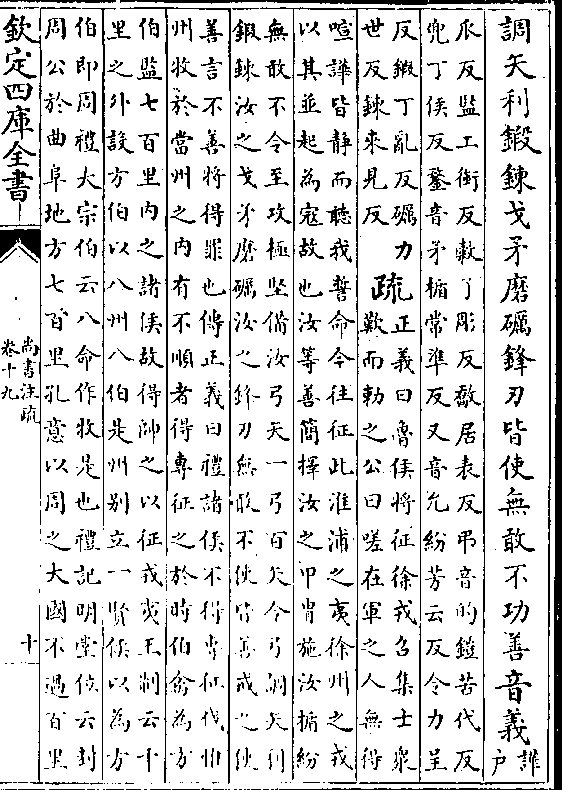 調矢利鍛鍊戈矛磨礪鋒刃皆使無敢不功善音義譁戶
瓜反監工銜反敹了彫反敿居表反弔音的鎧苦代反
兜丁侯反鍪音矛楯常準反又音允紛芳云反令力呈
反鍛丁亂反礪力
世反鍊來見反
疏
正義曰魯侯將征徐戎召集士衆
歎而勅之公曰嗟在軍之人無得
喧譁皆静而聽我誓命今往征此淮浦之夷徐州之戎
以其並起為寇故也汝等善簡擇汝之甲冑施汝楯紛
無敢不令至攻極堅備汝弓矢一弓百矢令弓調矢利
鍛鍊汝之戈矛磨礪汝之鋒刃無敢不使皆善戒之使
善言不善將得罪也傳正義曰禮諸侯不得専征伐惟
州牧於當州之内有不順者得専征之於時伯禽為方
伯監七百里内之諸侯故得帥之以征戎夷王制云千
里之外設方伯以八州八伯是州别立一賢侯以為方
伯即周禮大宗伯云八命作牧是也禮記明堂位云封
周公於曲阜地方七百里孔意以周之大國不過百里
欽定四庫全書
尚書注疏
卷十九
十